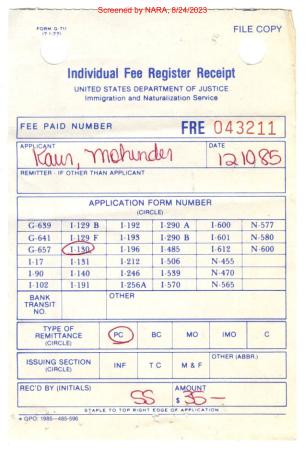 Screened by NARA, 8/24/2023
FORM G-711
(7-1-77)
FILE COPY
Individual Fee Register Receipt
UNITED STATES DEPARTMENT OF JUSTICE
Immigration and Naturalization Service
FEE PAID NUMBER FRE 043211
APPLICANT DATE
Kaur, Mohinder 121085
REMITTER - IF OTHER THAN APPLICANT
APPLICATION FORM NUMBER
(CIRCLE)
G-639 I-129 B I-192 I-290 A I-600 N-577
G-641 I-129 F I-193 I-290 B I-601 N-580
G-657 I-130 I-196 I-485 I-612 N-600
I-17 I-131 I-212 I-506 N-455
I-90 I-140 I-246 I-539 N-470
I-102 I-191 I-256A I-570 N-565
BANK TRANSIT NO. OTHER
TYPE OF REMITTANCE (CIRCLE) PC BC MO IMO C
ISSUING SECTION (CIRCLE) INF T C M & F OTHER (ABBR.)
REC'D BY (INITIALS) AMOUNT
SS $ 35—
STAPLE TO TOP RIGHT EDGE OF APPLICATION
* GPO: 1985-485-596